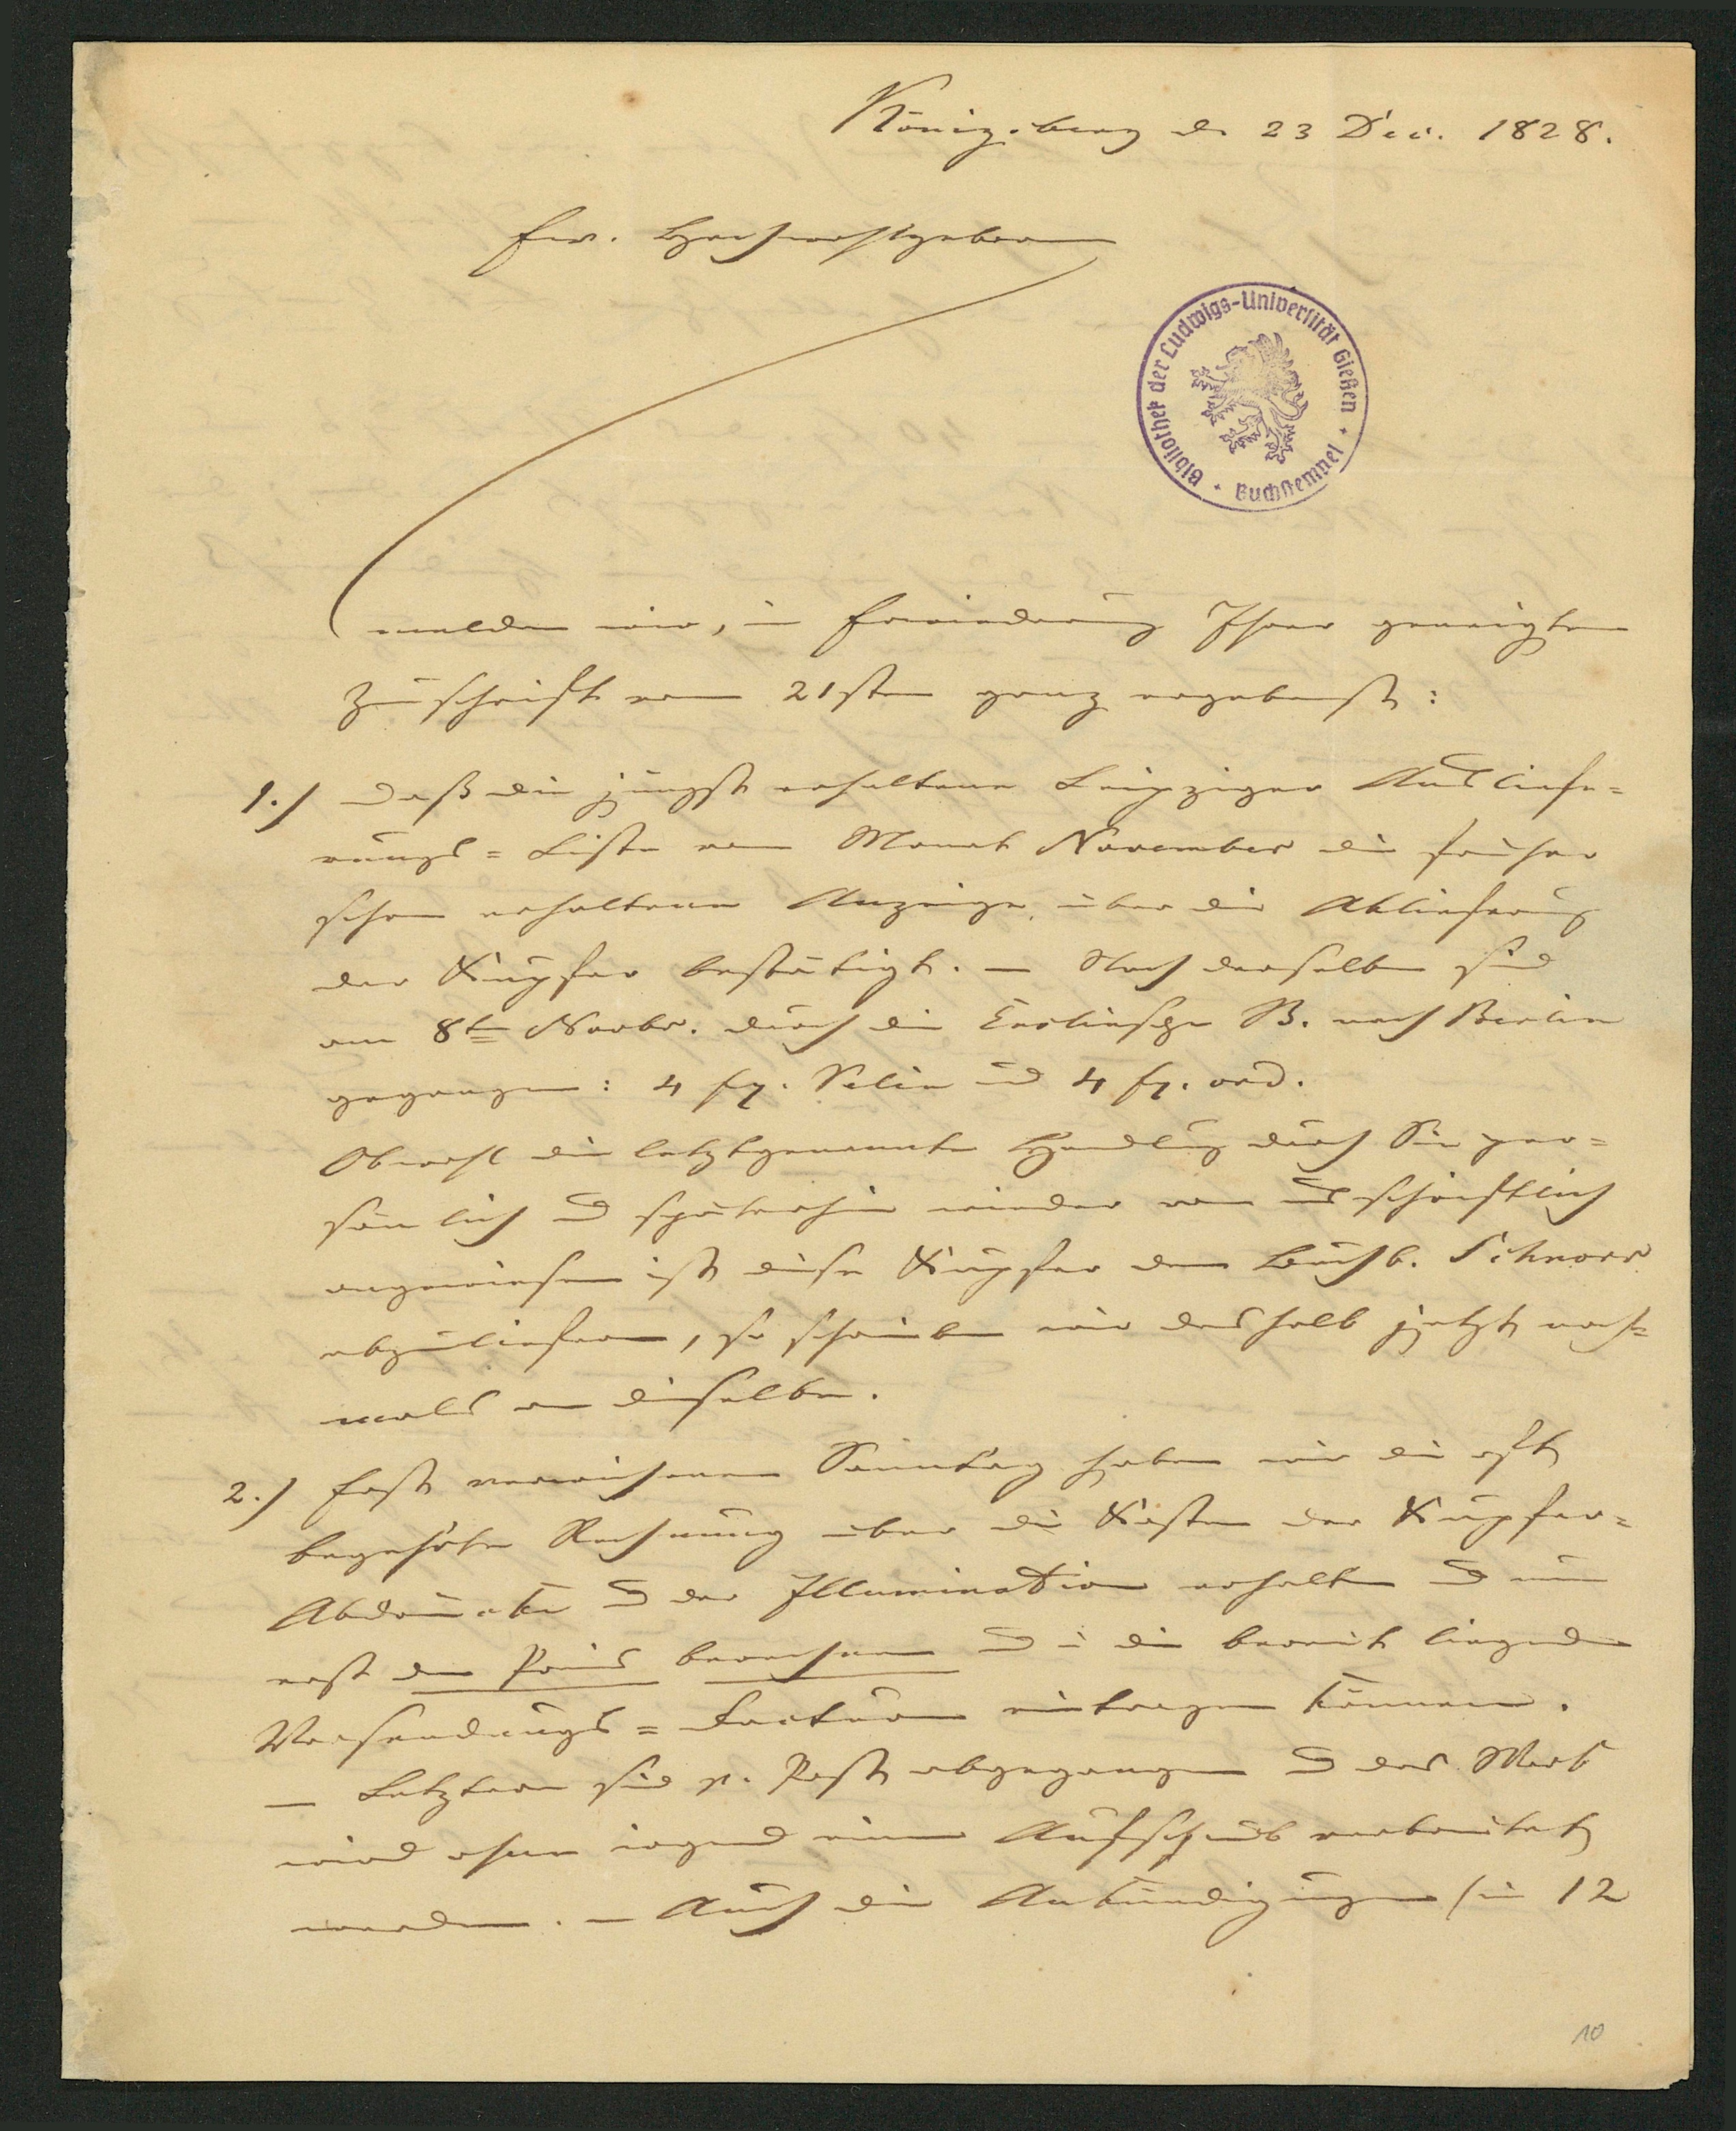 Königsberg d. 23 Dec. 1828.
Ew. Hochwohlgeboren
Bibliothek der Ludwigs-Universität Gießen
Buchstempel
melden wir, in Erwiederung Ihrer geneigten
Zuschrift vom 21sten ganz ergebenst:
1.) daß die jüngst erhaltene Leipziger Ausliefe-
rungs-Liste vom Monat November die früher
schon erhaltene Anzeige über die Ablieferung
der Kupfer bestätigt. — Nach derselben sind
am 8t Novbr. durch die Enslinsche B. nach Berlin
gegangen: 4 Ex. Velin und 4 Ex. ord.
Obwohl die letztgenannte Handlung durch Sie per-
sönlich und späterhin wieder von uns schriftlich
angewiesen ist diese Kupfer dem Buchb. Schnorr
abzuliefern, so schreiben wir deshalb jetzt noch-
mals an dieselbe.
2.) Erst verwichenen Sonntag haben wir die oft
begehrte Rechnung über die Kosten der Kupfer-
Abdrücke und der Illumination erhalten und nun
erst den Preis berechnen und in die bereit liegenden
Versendungs-Facturen eintragen können.
— Letztere sind p. Post abgegangen und das Werk
wird ohne irgend einen Aufschub verbreitet
werden. — Auch die Ankündigungen (in 12
10